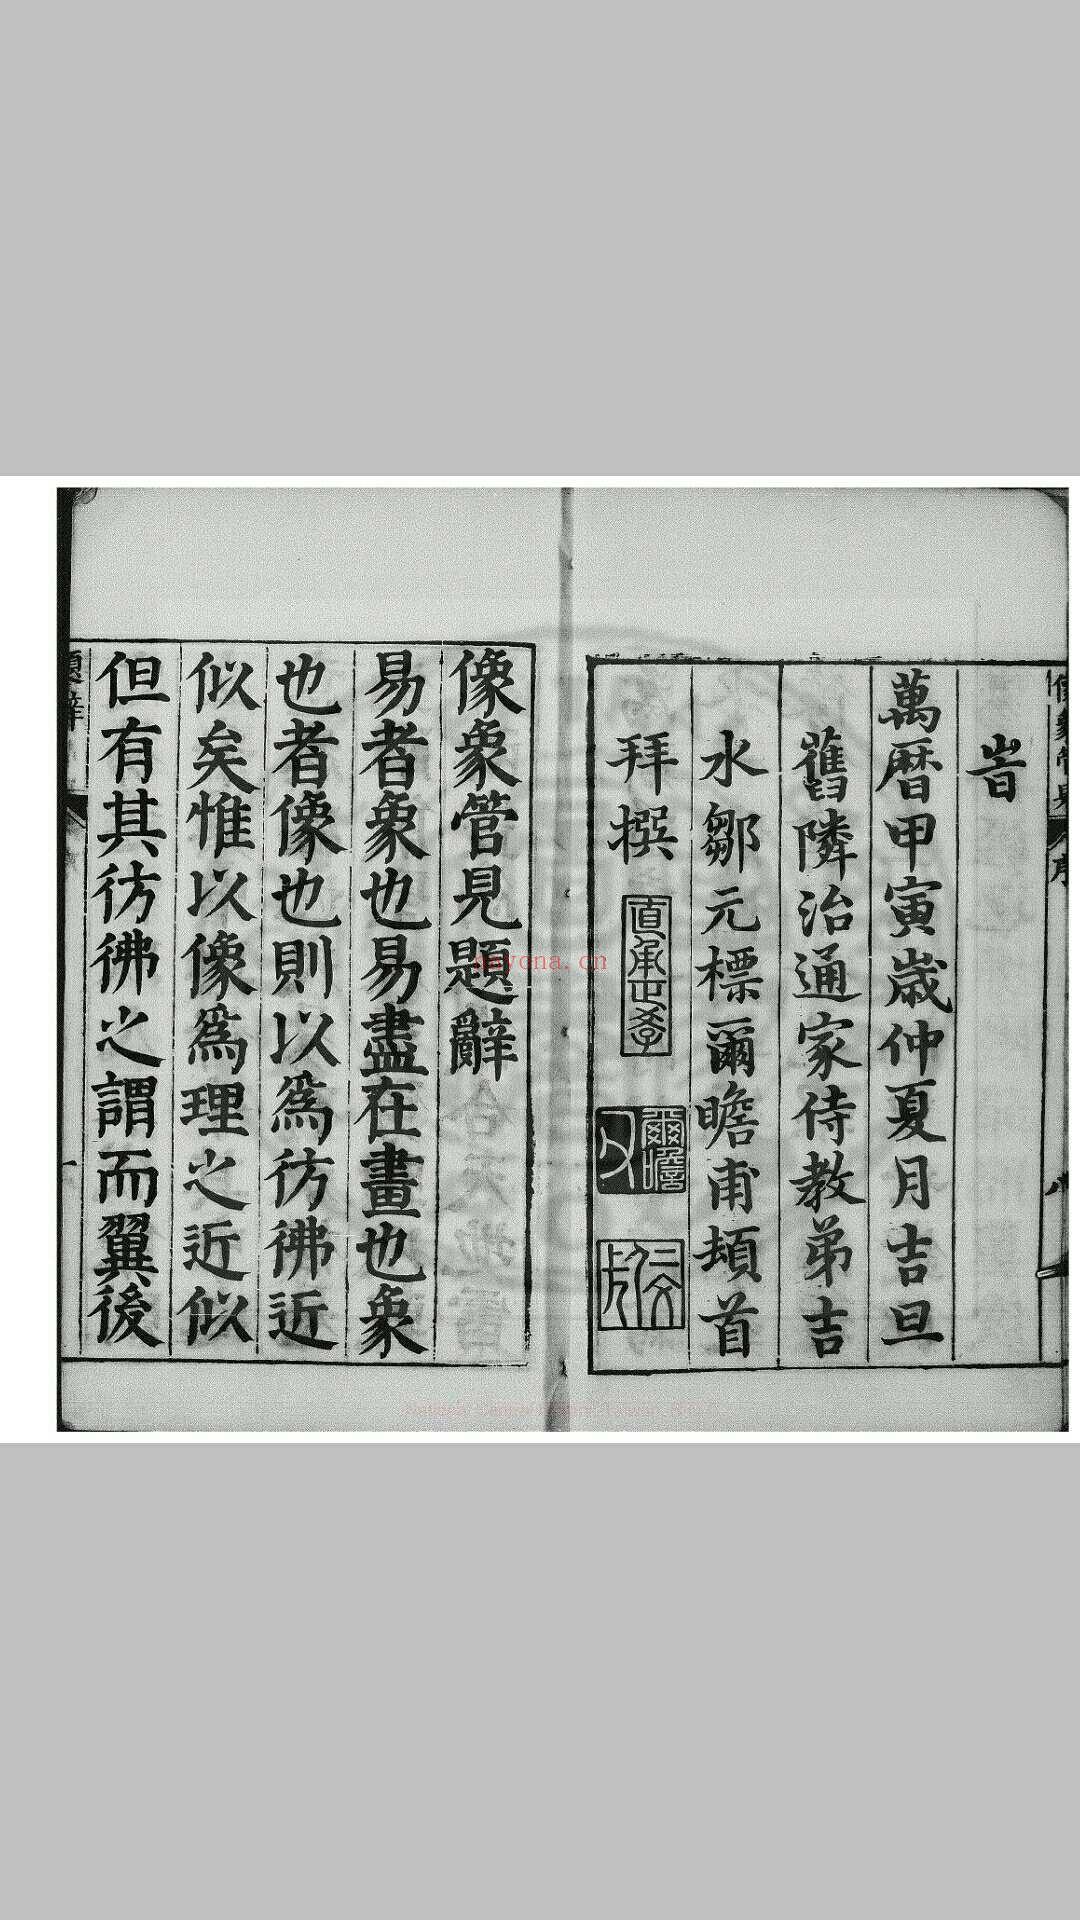 旹
萬曆甲寅歲仲夏月吉旦
舊隣治通家侍教弟吉
水鄒元標爾瞻甫頓首
拜撰
爾瞻
像象管見題辭
易者象也易盡在畫也象
也者像也則以爲彷彿近
似矣惟以像爲理之近似
但有其彷彿之謂而翼後
題辭
一